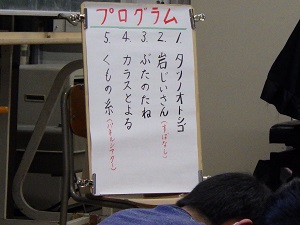 プログラム
1. タツノオトシゴ
2. 岩じいさん(すばなし)
3. ぶたのたね
4. カラスとよる
5. くもの糸(パネルシアター)